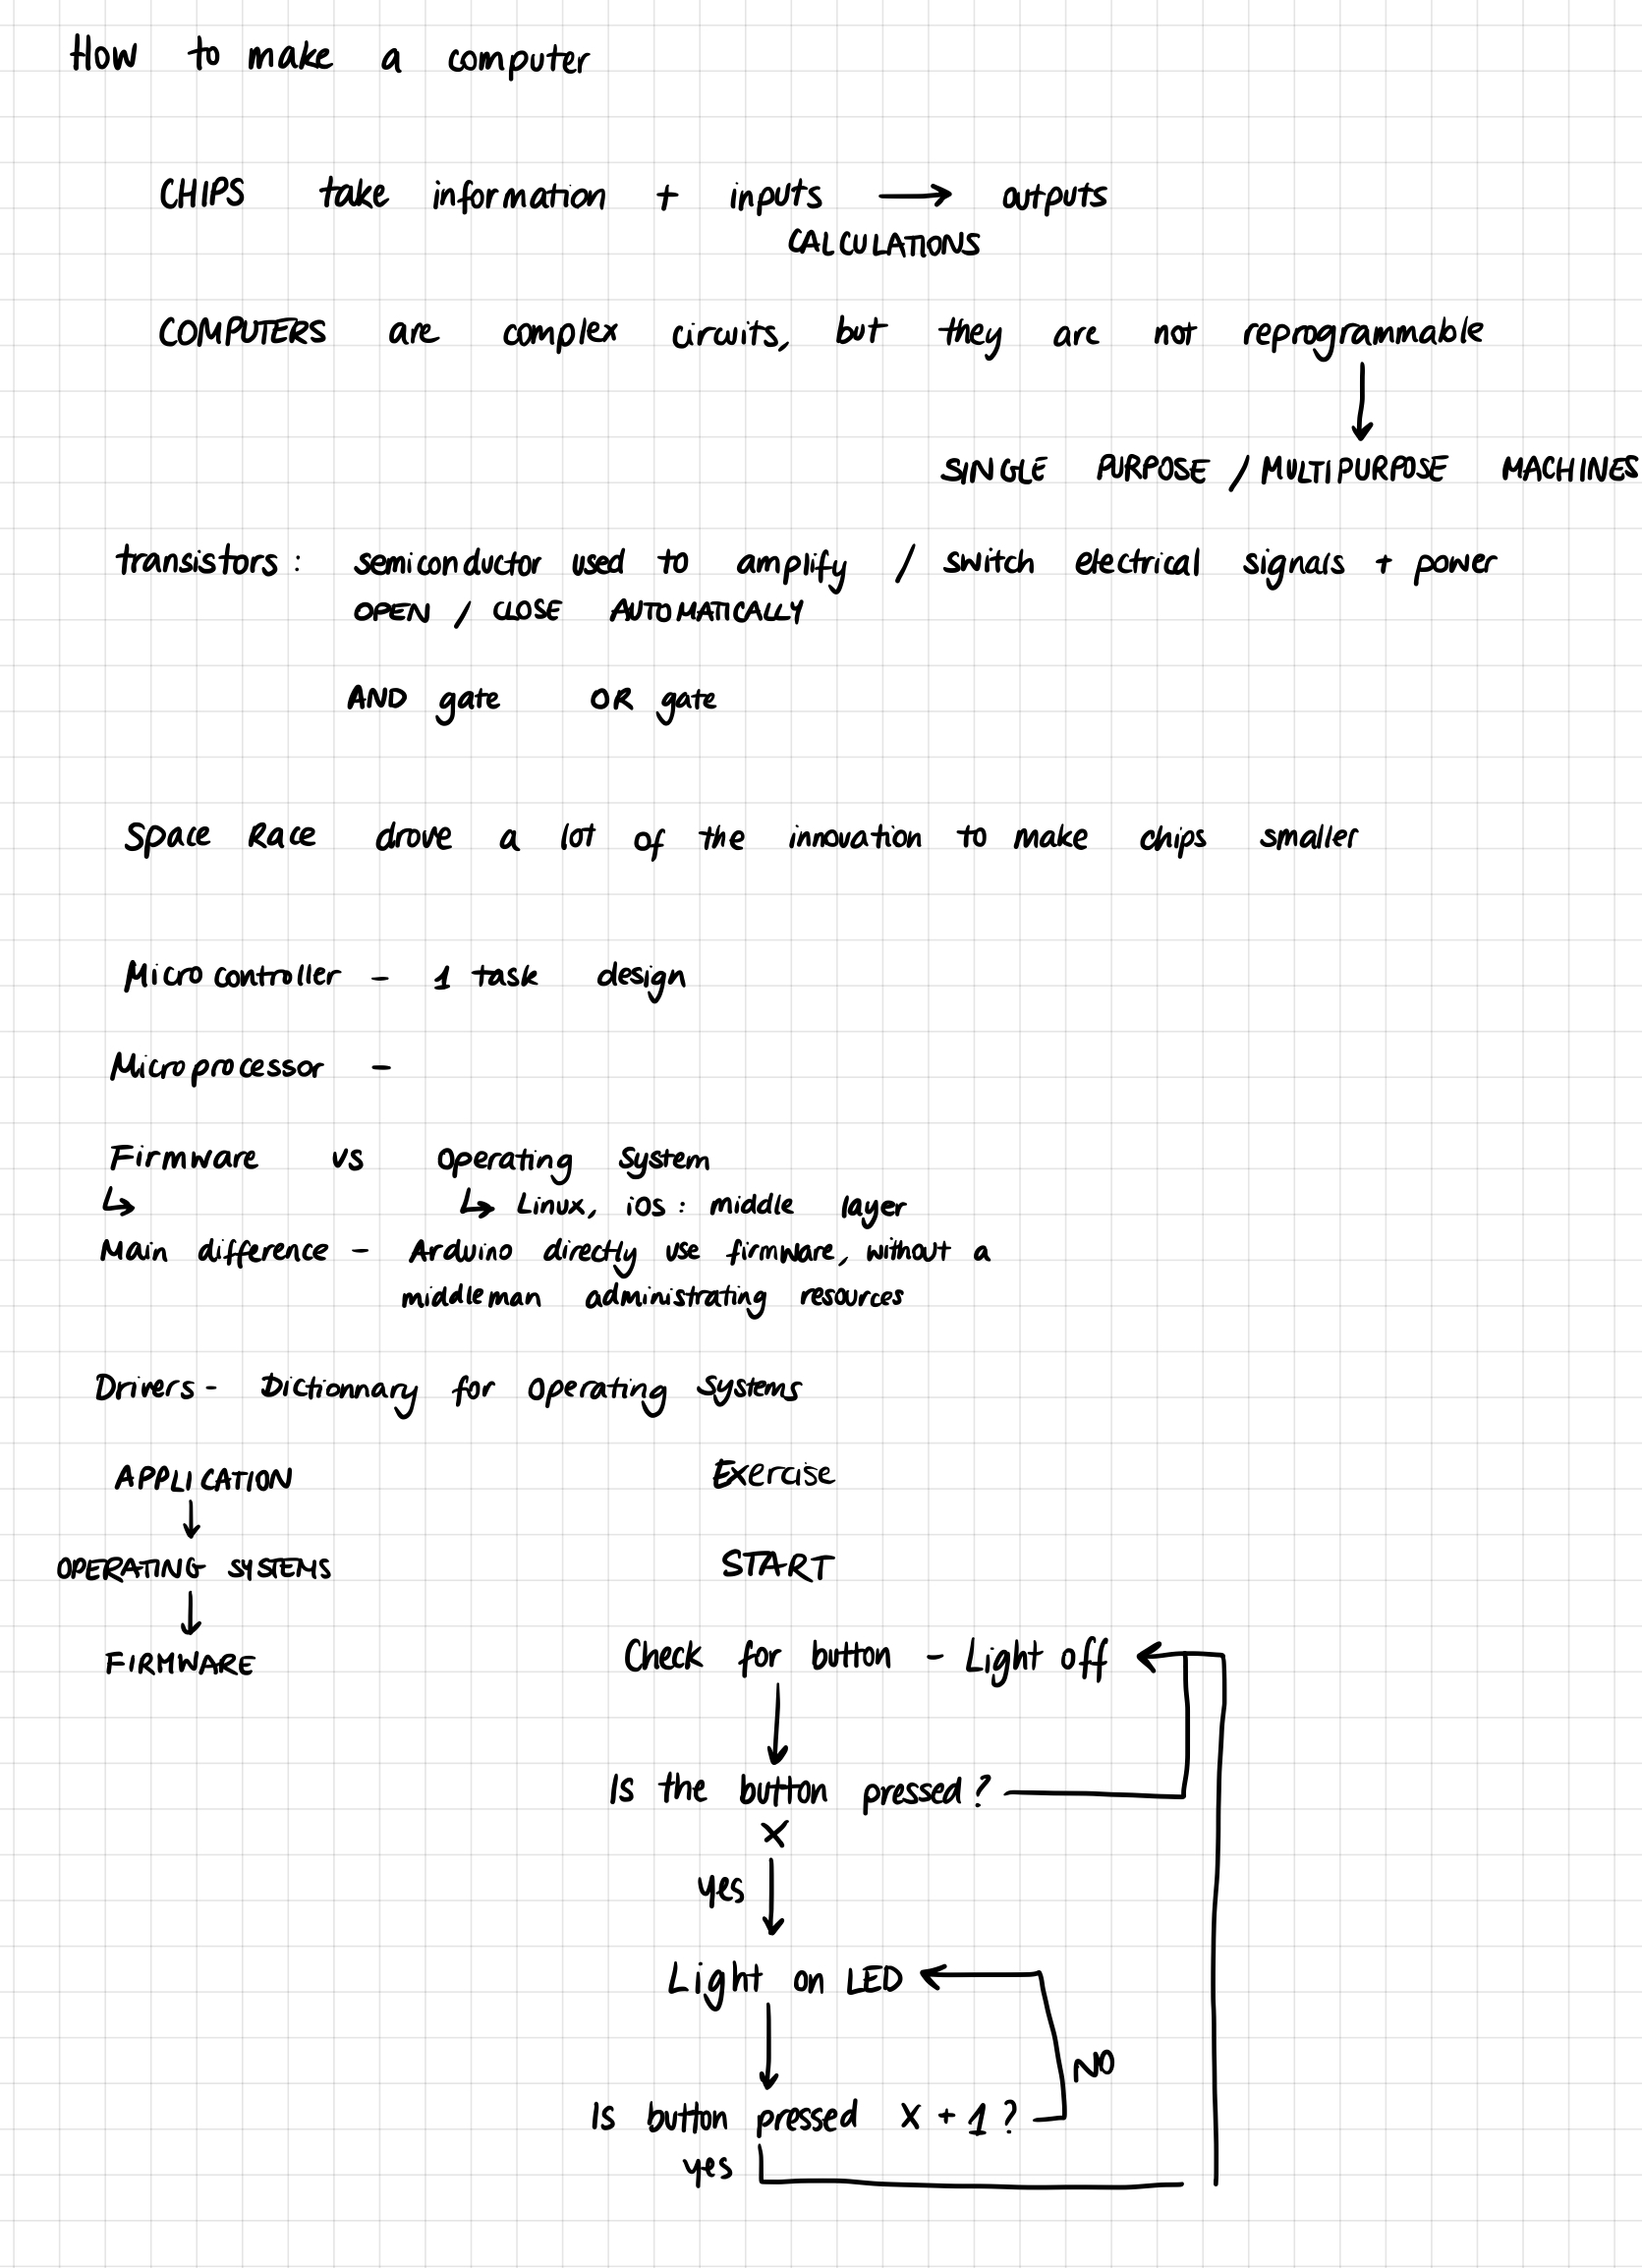 How to make a computer
CHIPS take information + inputs → outputs
CALCULATIONS
COMPUTERS are complex circuits, but they are not reprogrammable
↓
SINGLE PURPOSE / MULTIPURPOSE MACHINES
transistors : semiconductor used to amplify / switch electrical signals + power
OPEN / CLOSE AUTOMATICALLY
AND gate OR gate
Space Race drove a lot of the innovation to make chips smaller
Microcontroller - 1 task design
Microprocessor -
Firmware vs Operating System
↳ ↳ Linux, iOS : middle layer
Main difference - Arduino directly use firmware, without a
middleman administrating resources
Drivers - Dictionnary for Operating Systems
APPLICATION
↓
OPERATING SYSTEMS
↓
FIRMWARE
Exercise
START
Check for button - Light off
↓
Is the button pressed ?
X
yes ↓
Light on LED
↓
NO
Is button pressed X + 1 ?
yes